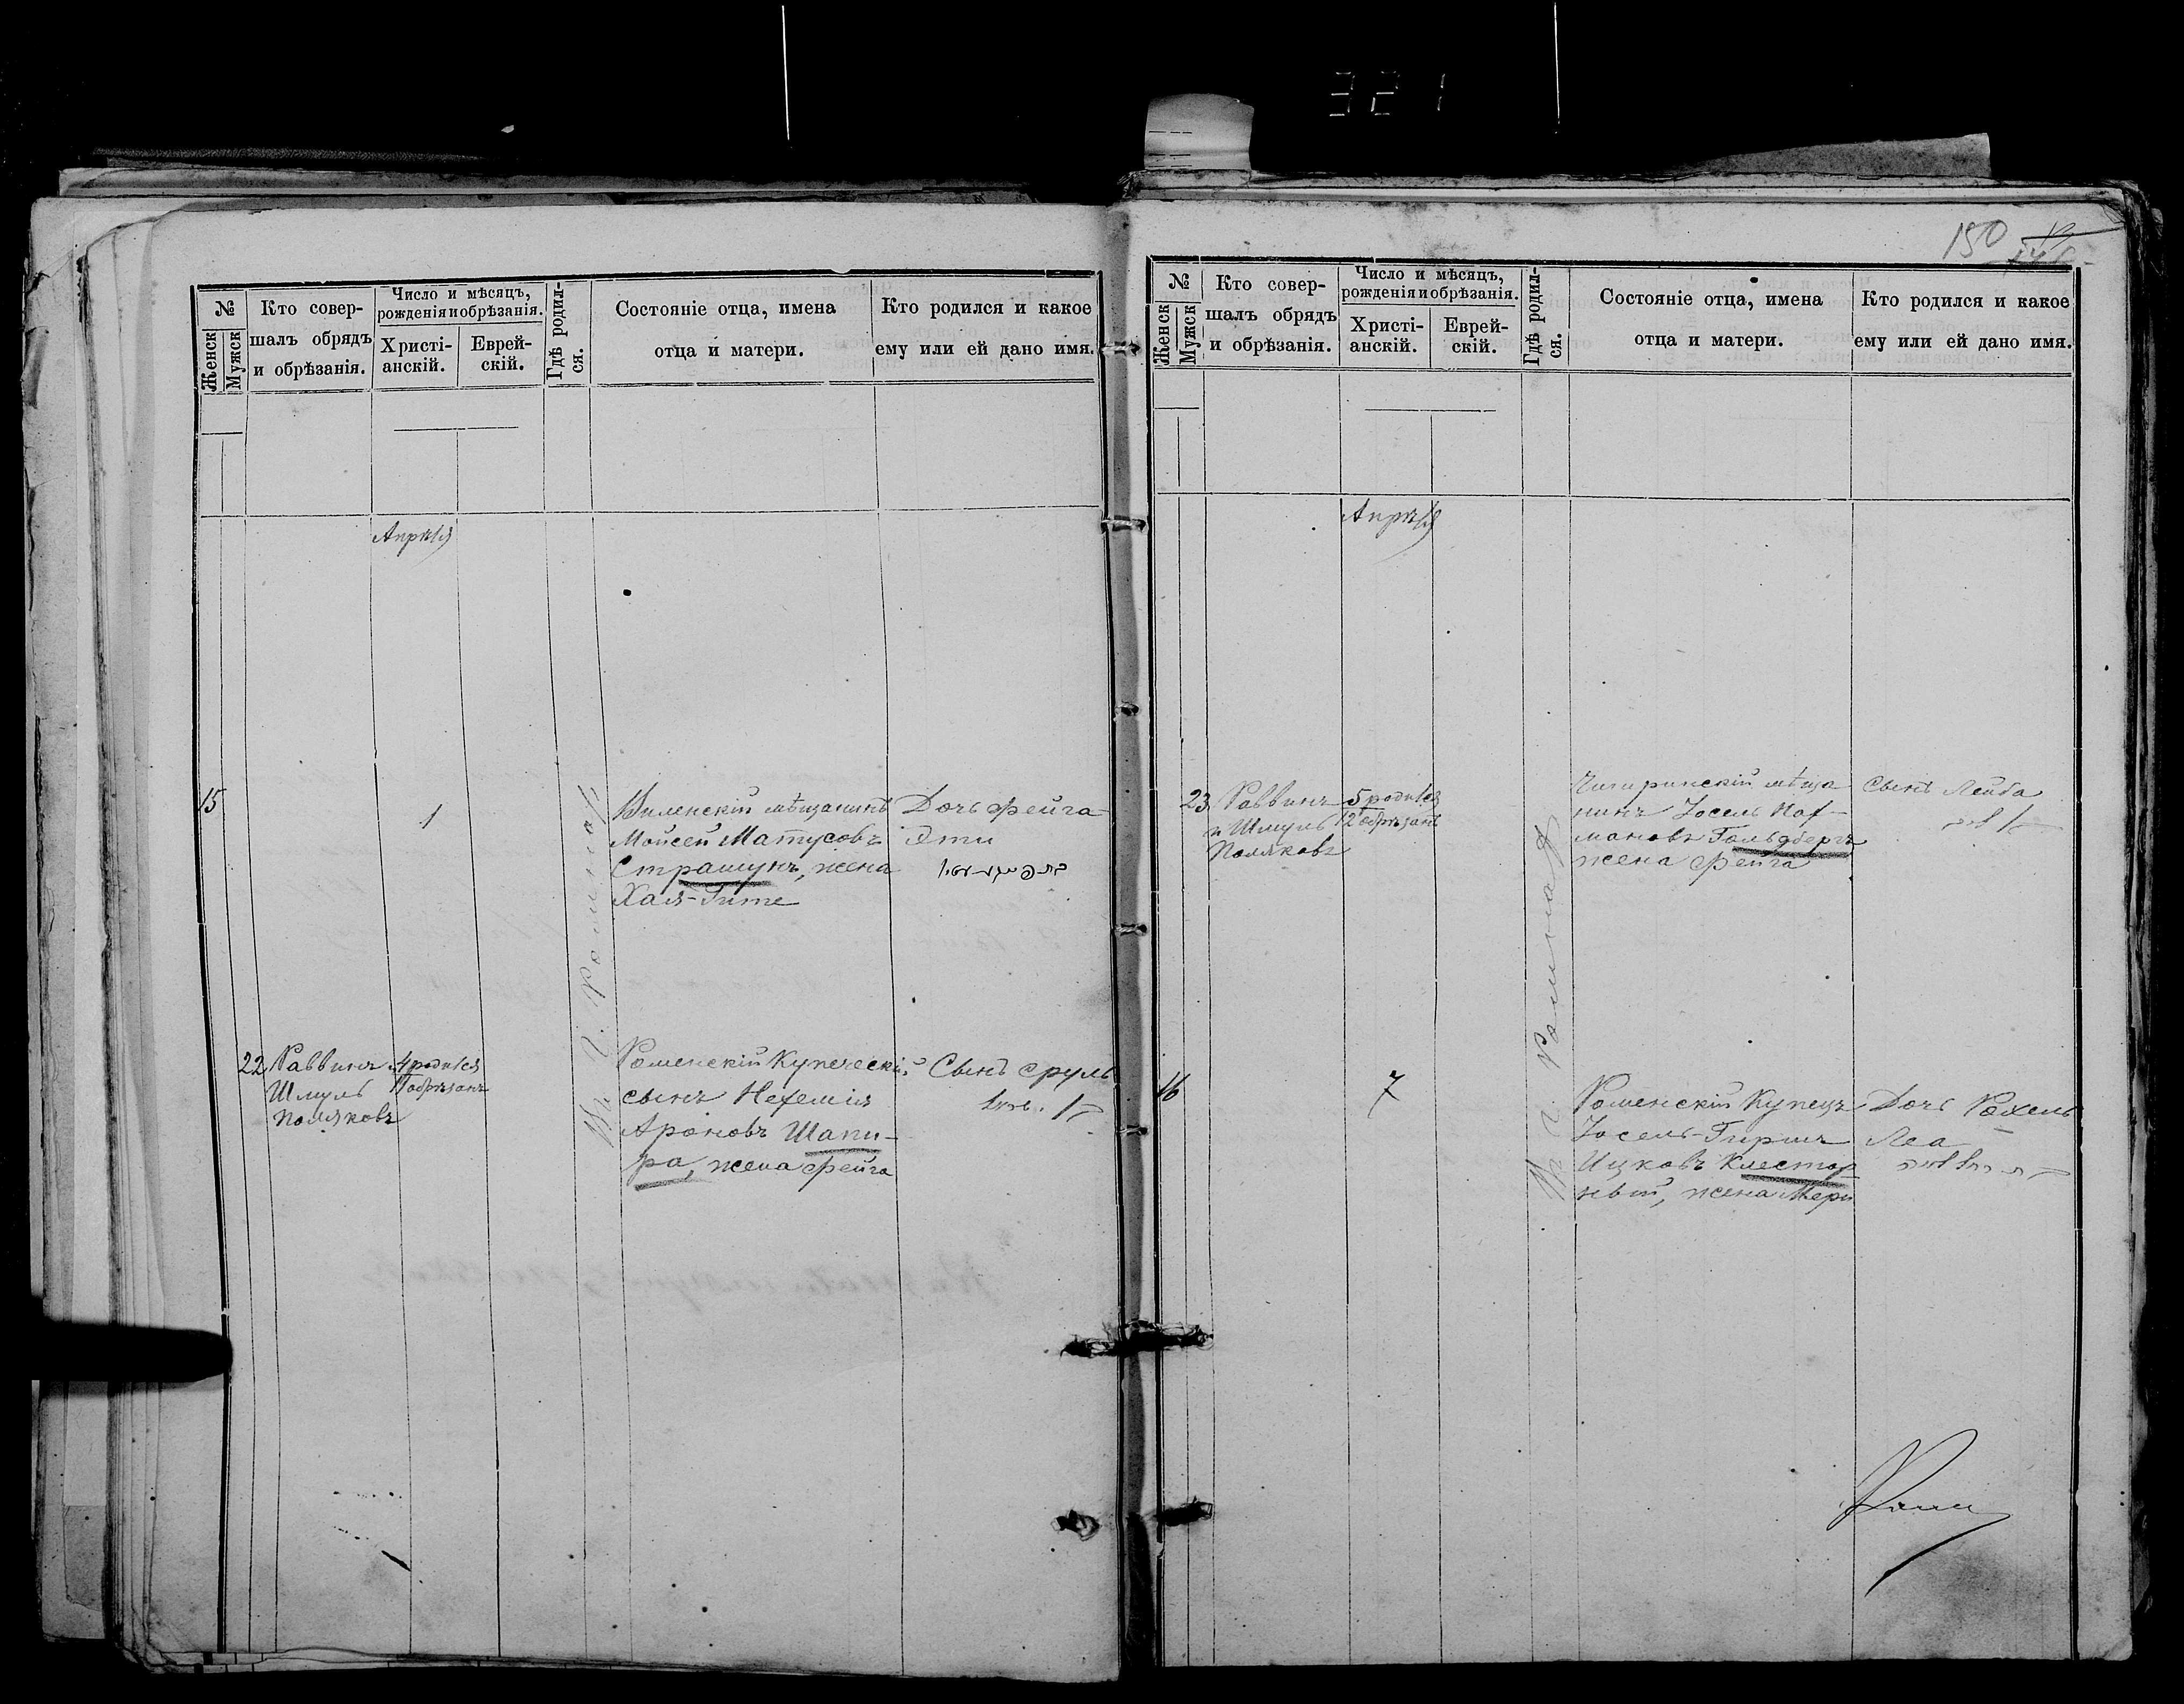 321
150
№
Женск
Мужск
Кто совер-
шалъ обрядъ
и обрѣзанія.
Число и мѣсяцъ,
рожденія и обрѣзанія.
Христі-
анскій.
Еврей-
скій.
Гдѣ родил-
ся.
Состояніе отца, имена
отца и матери.
Кто родился и какое
ему или ей дано имя.
Апрѣля
15
1
Въ г. Ромнахъ
Виленскій мѣщанинъ
Мойсей Матусовъ
Страшунъ, жена
Хая-Гите
Дочь Фейга
Эти
22
Раввинъ
Шмуль
Поляковъ
4 родился
11 обрѣзанъ
Роменскій Купеческій
сынъ Нехемія
Ароновъ Шапи-
ра, жена Фейга
Сынъ Сруль
№
Женск
Мужск
Кто совер-
шалъ обрядъ
и обрѣзанія.
Число и мѣсяцъ,
рожденія и обрѣзанія.
Христі-
анскій.
Еврей-
скій.
Гдѣ родил-
ся.
Состояніе отца, имена
отца и матери.
Кто родился и какое
ему или ей дано имя.
Апрѣля
23
Раввинъ
и Шмуль
Поляковъ
5 родился
12 обрѣзанъ
Въ г. Ромнахъ
Чигиринскій мѣща
нинъ Іосель Наф-
мановъ Гольдбергъ
жена Фейга
Сынъ Лейба
בן ליב
16
7
Роменскій Купецъ
Іосель-Гиршъ
Ицковъ
жена Мери
Дочь Рохель
Леа